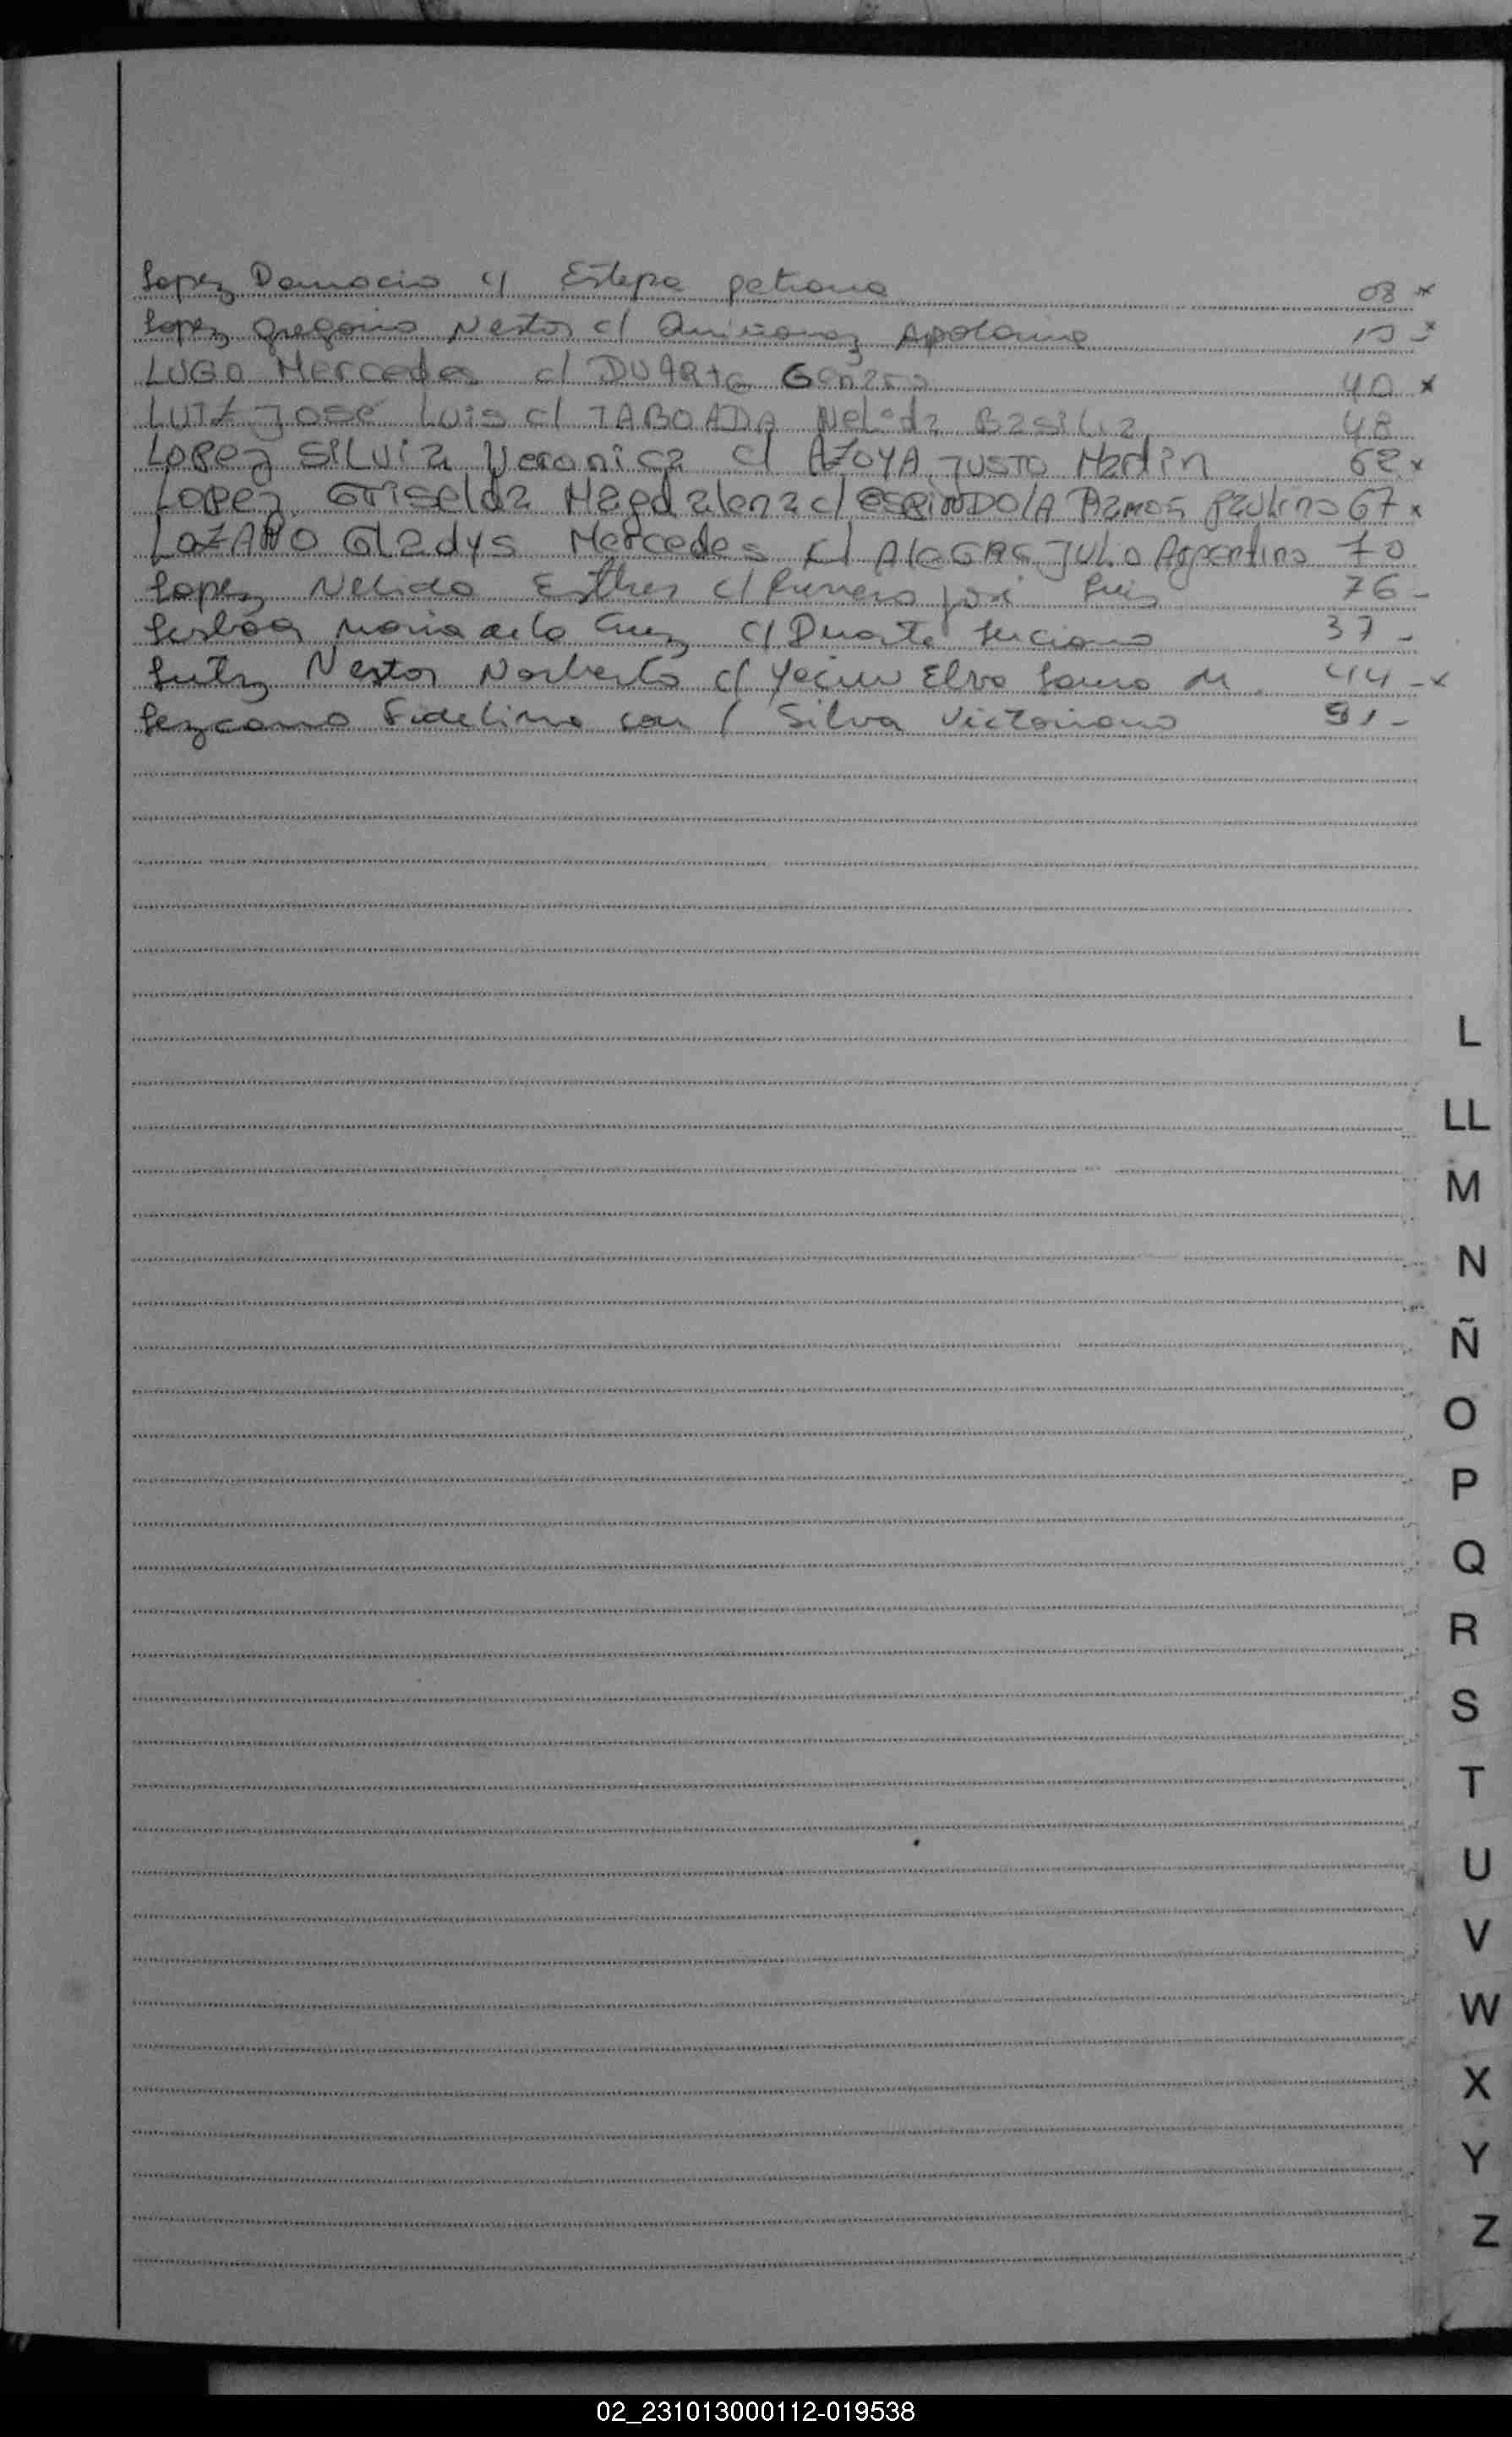 Lopez Damacio c/ Estepa petrona 08 x
Lopez Gregorio Nestor c/ Quiñonez Apolonia 15 x
LUGO Mercedes c/ DUARTE Genzro 40 x
LUTZ JOSE Luis c/ TABOADA Nelida Basilia 48
LOPEZ SILVIA Veronica c/ AZOYA JUSTO Martin 62 x
LOPEZ GRISELDA Magdalena c/ ESPINDOLA Ramos Paulino 67 x
LOZANO Gladys Mercedes c/ ALEGRE Julio Argentino 70
Lopez Nelida Esther c/ José Luis 76 -
Lisboa Maria de la Cruz c/ Duarte Luciano 37 -
Lutz Nestor Norberto c/ Elva Laura M. 44 - x
Lezcano Fidelina con / Silva Victoriano 91 -
L
LL
M
N
Ñ
O
P
Q
R
S
T
U
V
W
X
Y
Z
02_231013000112-019538